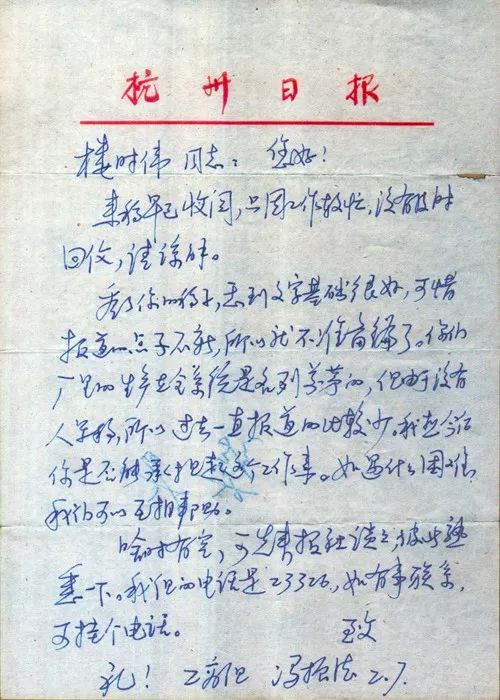 杭州日报
楼时伟同志：您好！
来稿早已收阅，只因工作较忙，没有及时
回信，请谅解。
看了你的稿子，感到文字基础很好，可惜
报道的点子不新，所以就不准备编了。你们
厂里的生产在全系统是名列前茅的，但由于没有
人写稿，所以过去一直报道的比较少。我想今后
你是否能承担起这个工作来。如遇什么困难，
我们可以互相帮助。
啥时有空，可先来报社谈谈，彼此熟
悉一下。我们的电话是23326，如有事联系，
可挂个电话。
致
礼！ 工商组 冯振德 2.7.